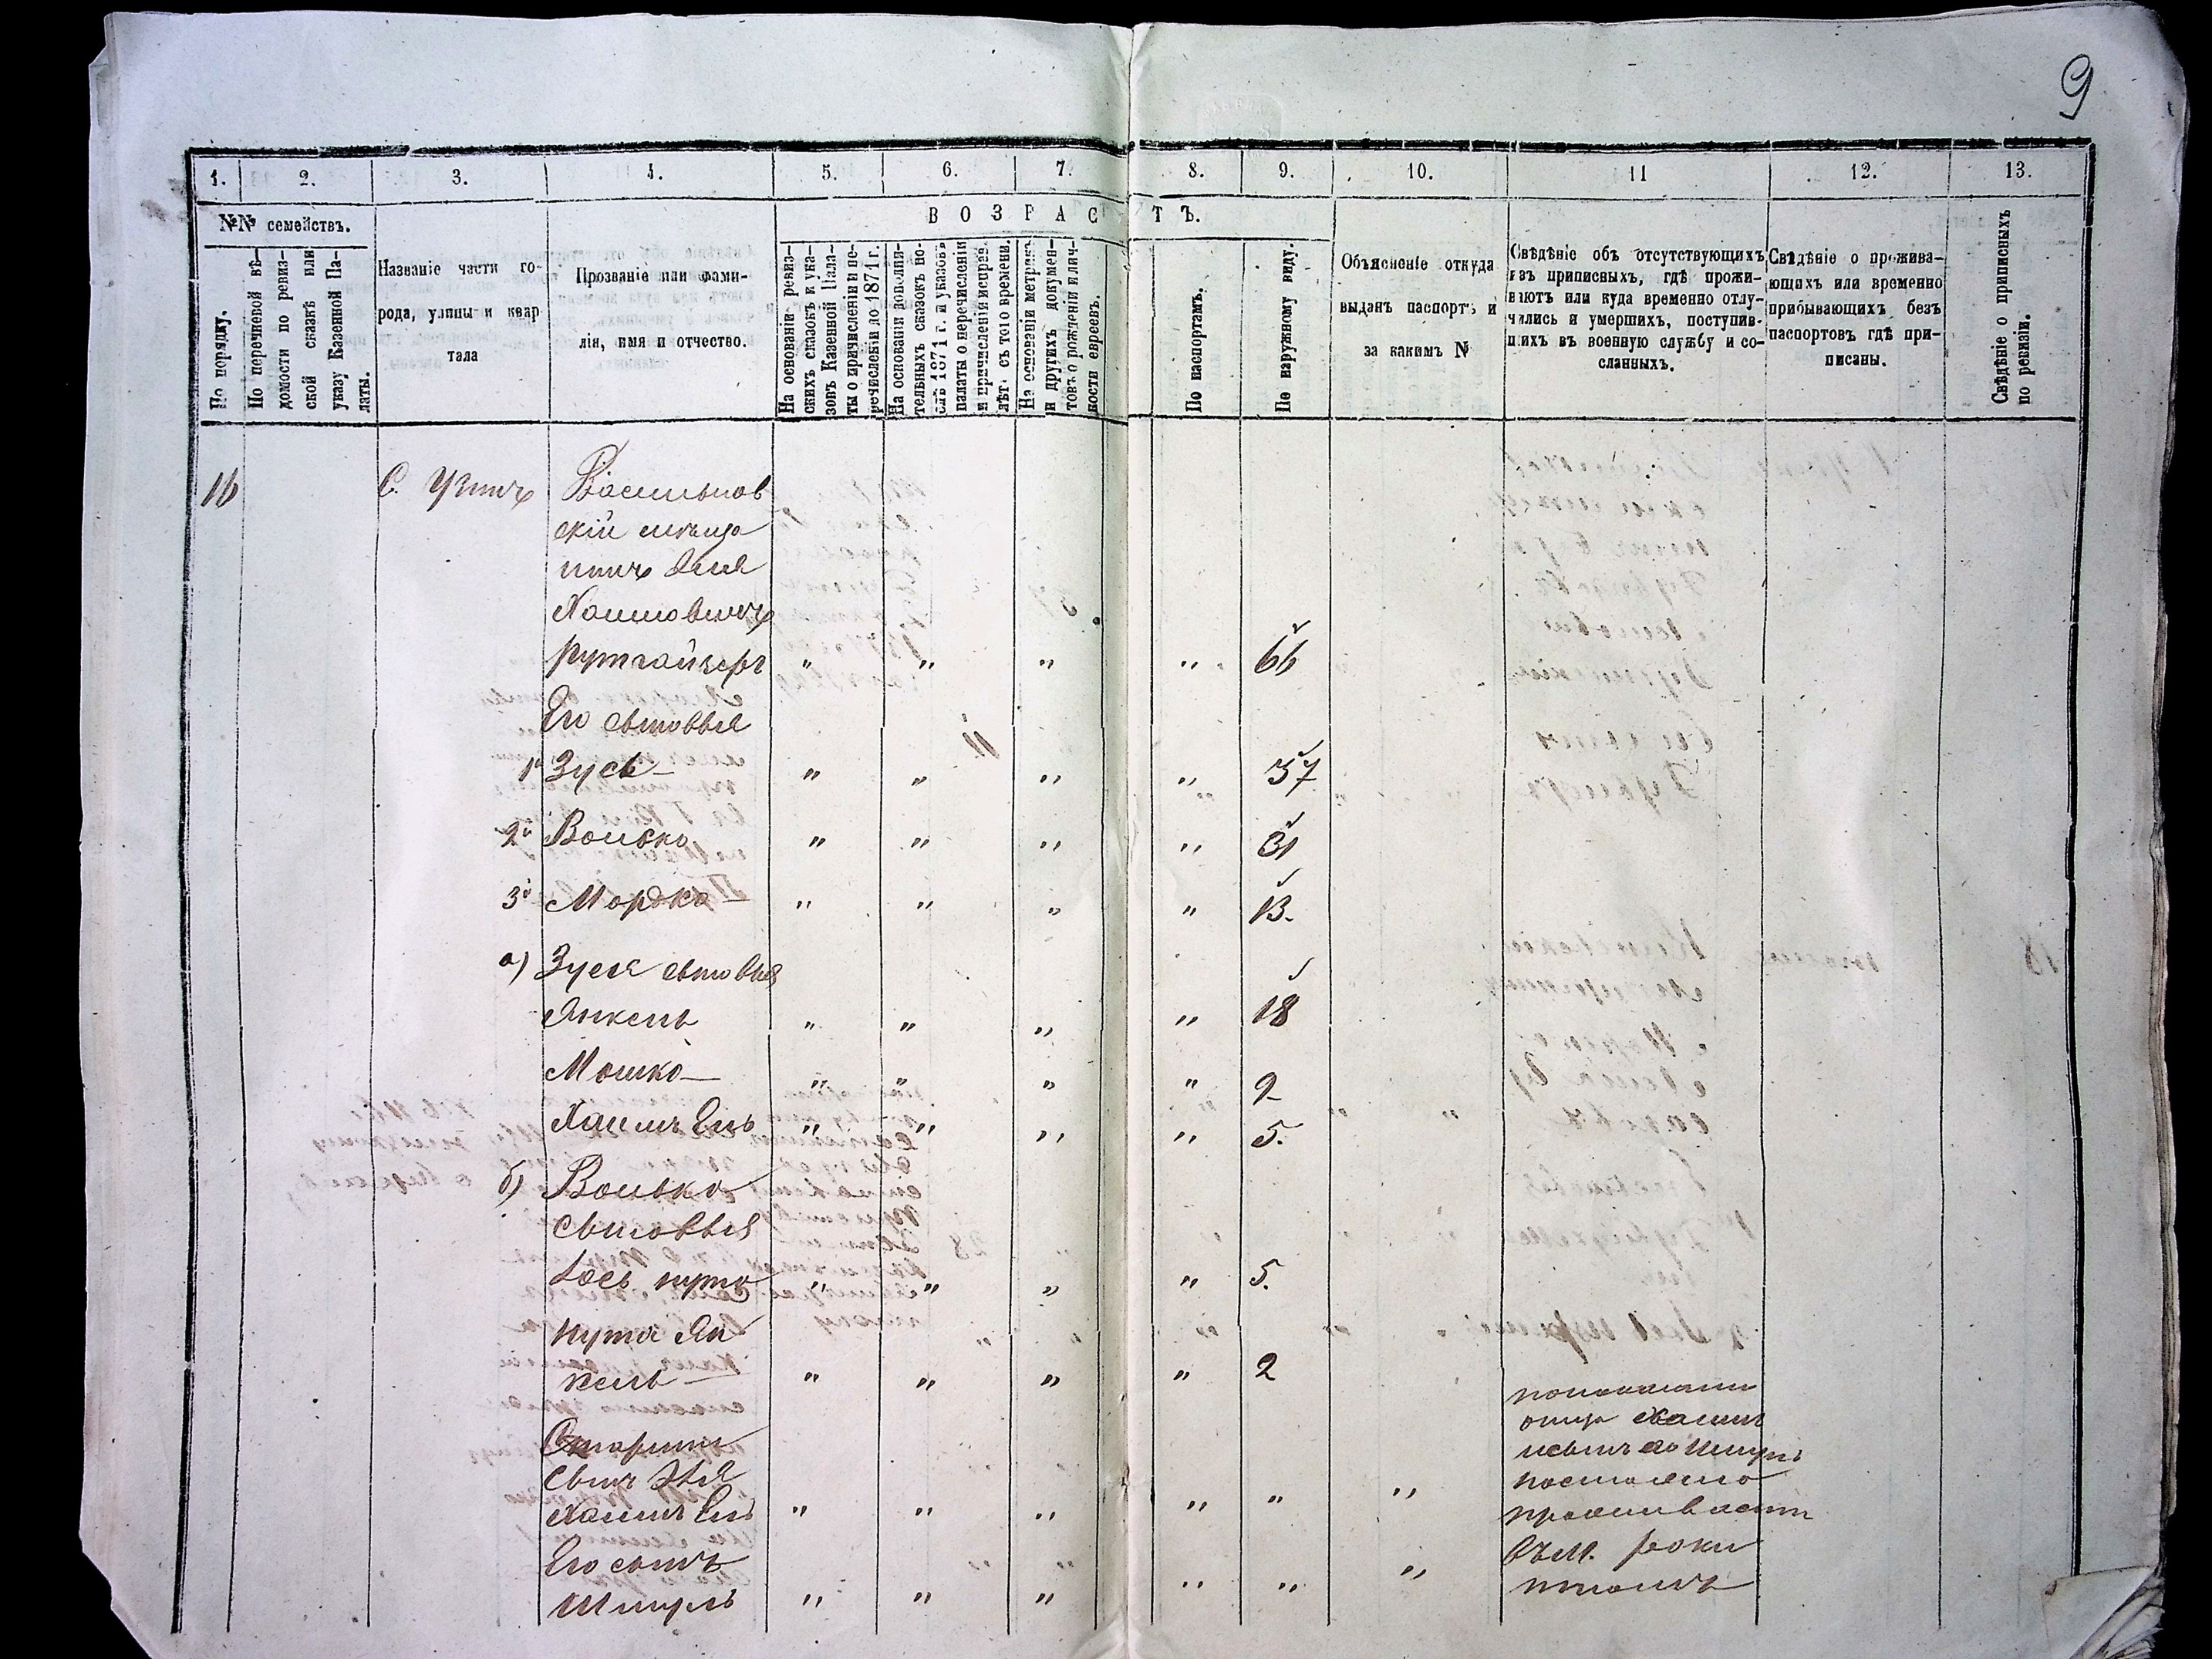 9
1. 2. 3. 4. 5. 6. 7. 8. 9. 10. 11 12. 13.
№№ семействъ.
В О З Р А С Т Ъ.
По порядку.
По перечневой вѣ-
домости по ревиз-
ской сказкѣ или
указу Казенной Па-
латы.
Названіе части го-
рода, улицы и квар
тала
Прозваніе или фами-
лія, имя и отчество.
На основаніи ревиз-
скихъ сказокъ и ука-
зовъ Казенной Пала-
ты о причисленіи и пе-
речисленіи до 1871 г.
На основаніи дополни-
тельныхъ сказокъ по-
слѣ 1871 г. и указовъ
палаты о перечисленіи
и причисленіи исправ.
лѣт. съ того времени.
На основаніи метрикъ
и другихъ докумен-
товъ о рожденіи и лич-
ности евреевъ.
По паспортамъ.
По наружному виду.
Объясненіе откуда
выданъ паспортъ и
за какимъ №
Свѣдѣніе объ отсутствующихъ
изъ приписныхъ, гдѣ прожи-
ваютъ или куда временно отлу-
чились и умершихъ, поступив-
шихъ въ военную службу и со-
сланныхъ.
Свѣдѣніе о прожива-
ющихъ или временно
прибывающихъ безъ
паспортовъ гдѣ при-
писаны.
Свѣдѣніе о приписныхъ
по ревизіи.
16 С. Узинъ Васильков
скій мѣща
нинъ Эля
Хаимовичъ
Рутгайзеръ " " " " 66
Его сыновья
1й Зусь " " " " 37
2й Волько " " " " 31
3й Мордко " " " " 13.
а) Зуся сыновья
Янкель " " " " 18
Мошко " " " " 9
Хаимъ Ель " " " " 5.
б) Волько
сыновья
Іось нута " " " " 5.
Нута Ян
кель " " " " 2
отца
Старшій
сынъ Эля постоянно
Хаимъ Ель " " " " " " проживаетъ
Его сынъ въ м. Роки
Шмуль " " " " " " тномъ